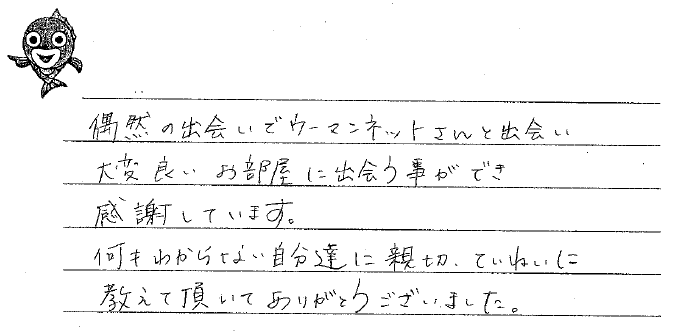 偶然の出会いでウーマンネットさんと出会い
大変良いお部屋に出会う事ができ
感謝しています。
何もわからない自分達に親切、ていねいに
教えて頂いてありがとうございました。